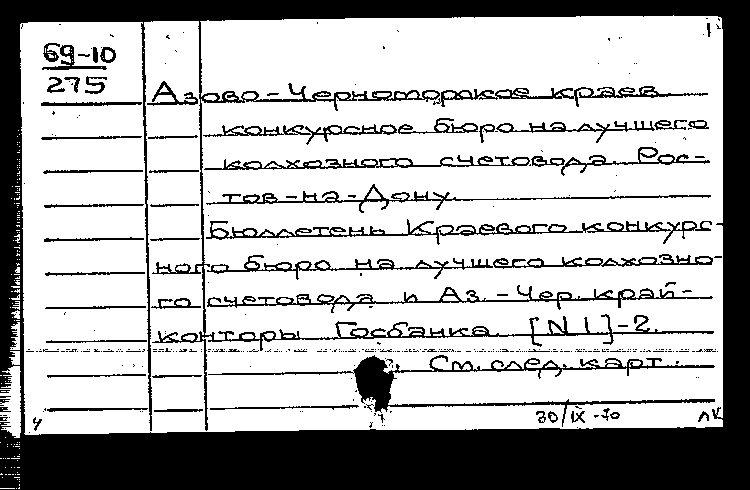 1
69-10
275
Азово-Черноморское краев.
конкурсное бюро на лучшего
колхозного счетовода. Рос-
тов-на-Дону.
Бюллетень Краевого конкурс-
ного бюро на лучшего колхозно-
го счетовода и Аз.-Чер. край-
конторы Госбанка. [N 1]-2.
См. след. карт.
30/IX-70 лк
ч